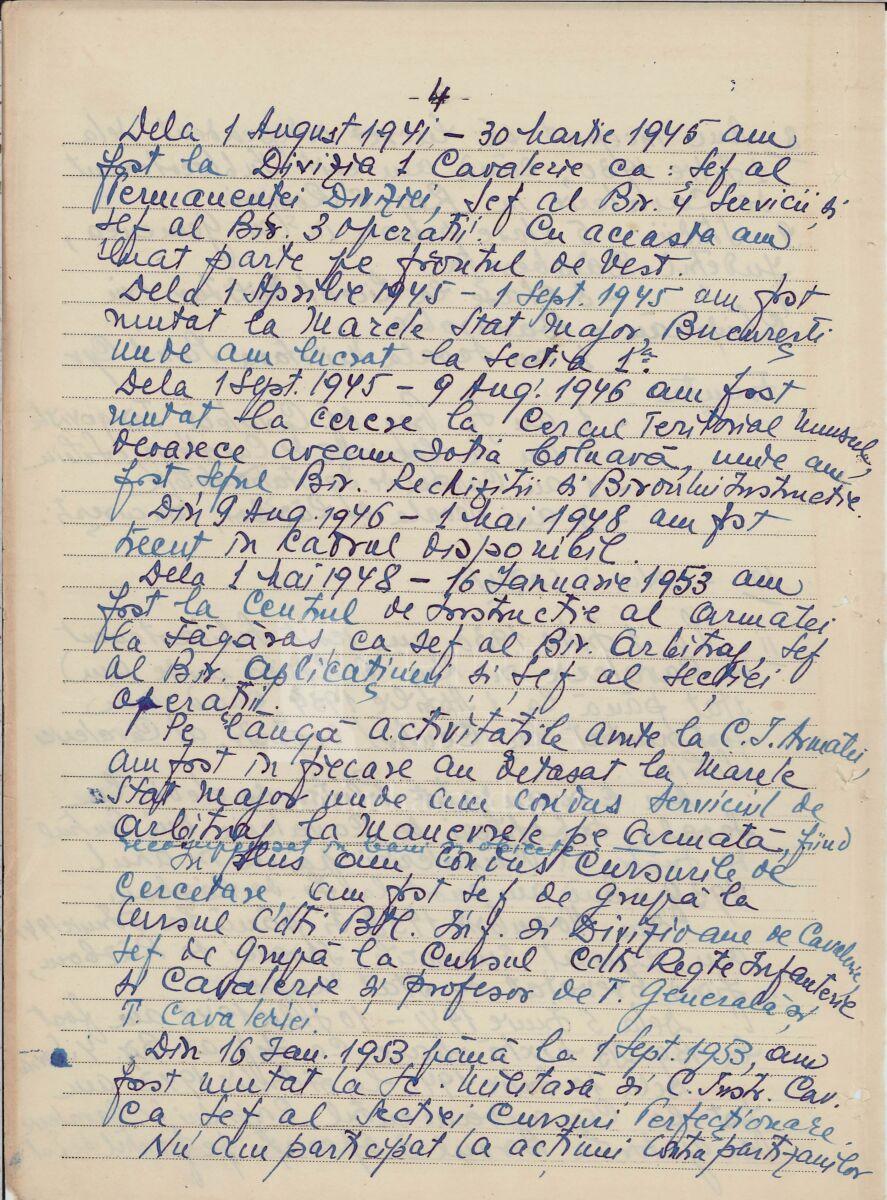 -4-
Dela 1 August 1941 - 30 Martie 1945 am
fost la Divizia 1 Cavalerie ca: șef al
Permanenței Diviziei, Șef al Bir. 4 Servicii, și
șef al Bir. 3 operații. Cu aceasta am
luat parte pe frontul de Vest.
Dela 1 Aprilie 1945 - 1 Sept. 1945 am fost
mutat la Marele Stat Major, București
unde am lucrat la Secția 1-a.
Dela 1 Sept. 1945 - 9 Aug. 1946 am fost
mutat la cerere la Cercul Teritorial Muscel,
deoarece aveam soția bolnavă, unde am
fost șeful Bir. Rechiziții și Biroului Instrucție.
Din 9 Aug. 1946 - 1 Mai 1948 am fost
trecut în cadrul disponibil.
Dela 1 Mai 1948 - 16 Ianuarie 1953 am
fost la Centrul de Instrucție al Armatei
la Făgăraș, ca șef al Bir. Arbitraj, șef
al Bir. aplicațiuni și șef al secției
operații.
Pe lângă activitățile avute la C. I. Armatei,
am fost în fiecare an detașat la Marele
Stat Major unde am condus serviciul de
arbitraj la manevrele pe armată, fiind
recompensat în bani și obiecte.
În plus am condus Cursurile de
Cercetare am fost șef de grupă la
Cursul Cdti Btl. Inf. și Divizioane de Cavalerie,
șef de grupă la Cursul Cdti Regte Infanterie
și Cavalerie și profesor de T. Generală și
T. Cavaleriei.
Din 16 Ian. 1953 până la 1 Sept. 1953, am
fost mutat la Șc. Militară și C. Instr. Cav.
ca șef al Secției Cursuri Perfecționare.
Nu am participat la acțiuni contra partizanilor